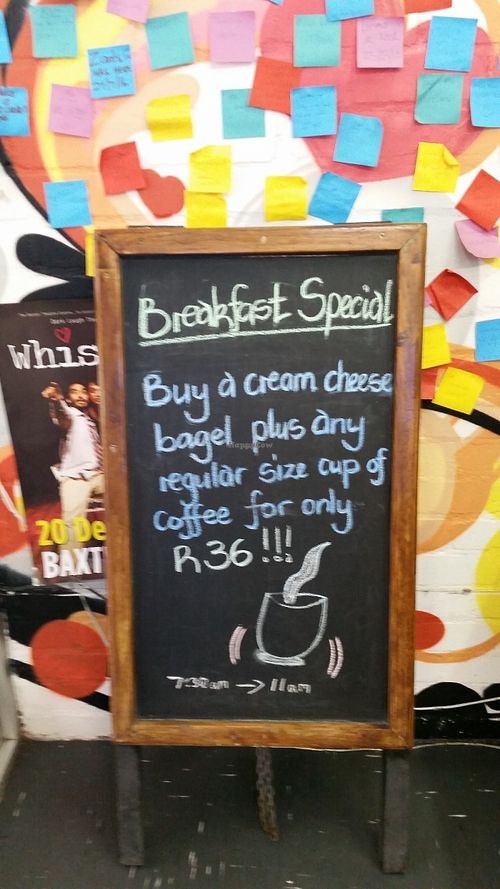 Breakfast Special
Buy a cream cheese
bagel plus any
regular size cup of
coffee for only
R36 !!!
7:30am → 11am
Whis
20 De
BAXT
HappyCow